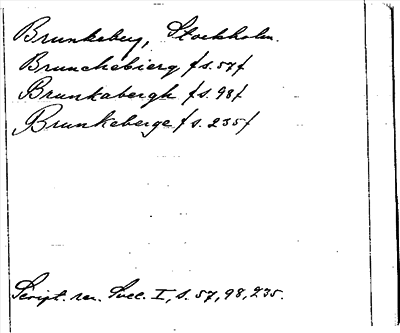 Brunkeberg, Stockholm.
Brunchebierg /s. 57/
Brunkabergh /s. 98/
Brunkeberge /s. 235/
Script. rer. Svec. I, s. 57, 98, 235.